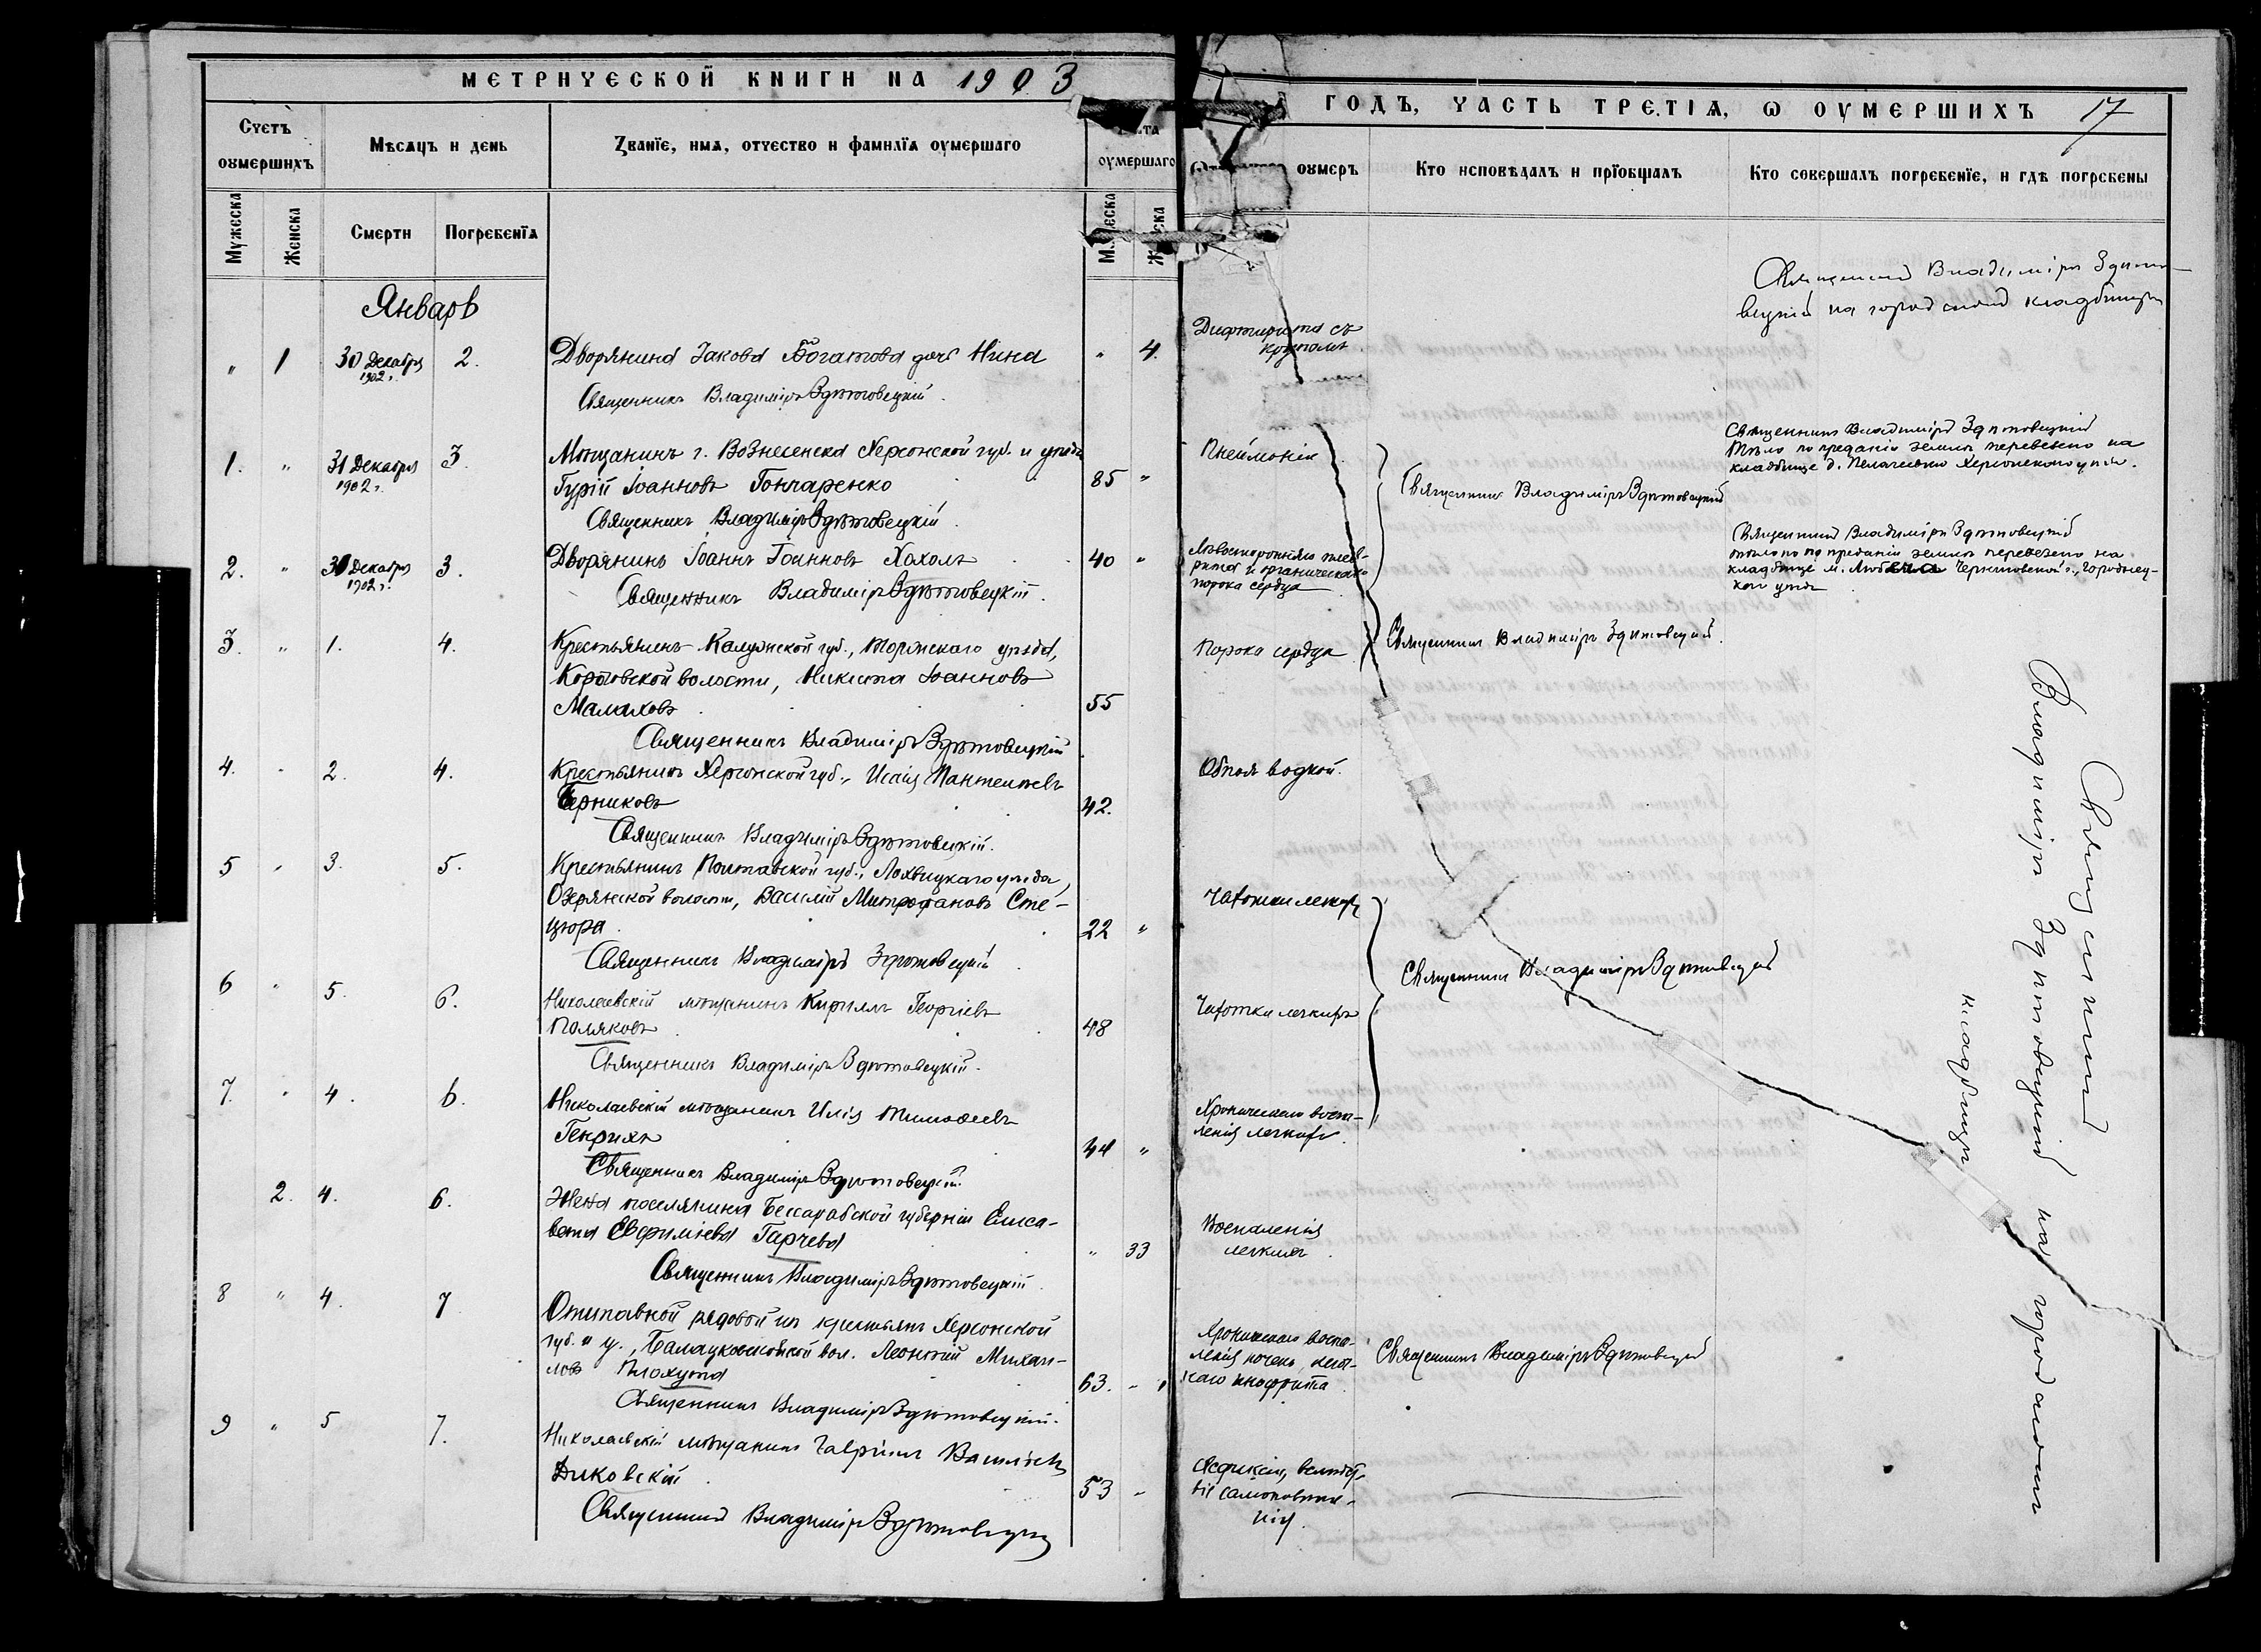 МЕТРИЧЕСКОЙ КНИГИ НА 1903
ГОДЪ, ЧАСТЬ ТРЕТІѦ, Ѡ ОУМЕРШИХЪ 17
Счетъ оумершихъ
Мѣсѧцъ и день
Званїе, имѧ, отчество и фамилїѧ оумершаго
оумершаго
оумеръ
Кто исповѣдалъ и прїобщалъ
Кто совершалъ погребенїе, и гдѣ погребены
Мужеска
Женска
Смерти
Погребенїѧ
Январь
" 1 30 Декабря 1902 г. 2. Дворянина Іакова Богатова дочь Нина " 4.
Дифтерита съ крупомъ
Священникъ Владиміръ Здѣтовецкій на городскомъ кладбищѣ
Священникъ Владиміръ Здѣтовецкій.
1. " 31 Декабря 1902 г. 3. Мѣщанинъ г. Вознесенска Херсонской губ. и уѣзда
Гурій Іоанновъ Гончаренко 85 "
Священникъ Владиміръ Здѣтовецкій.
Пнеймонія
Священникъ Владиміръ Здѣтовецкій
Священникъ Владиміръ Здѣтовецкій
Тѣло по преданіи землѣ перевезено на
кладбище д. Пелагеевки Херсонскаго уѣзд.
2. " 30 Декабря 1902 г. 3. Дворянинъ Іоаннъ Іоанновъ Хохолъ 40 "
Священникъ Владиміръ Здѣтовецкій.
Лѣвосторонняго плев-
рита и органическаго
порока сердца
Священникъ Владиміръ Здѣтовецкій
тѣло по преданіи землѣ перевезено на
кладбище м. Любеча Черниговской г., Городниц-
кой уѣзда
3. " 1. 4. Крестьянинъ Калужской губ., уѣзда,
волости, Никита Іоанновъ
Малаховъ 55
Священникъ Владиміръ Здѣтовецкій
Порока сердца
Священникъ Владиміръ Здѣтовецкій.
4. " 2. 4. Крестьянинъ Херсонской губ., Исаія Пантелѣевъ
Черниковъ 42.
Священникъ Владиміръ Здѣтовецкій.
Опоя водкой.
5 " 3. 5. Крестьянинъ Полтавской губ., Лохвицкаго уѣзда,
Озерянской волости, Василій Митрофановъ Сте-
цюра 22 "
Священникъ Владиміръ Здѣтовецкій
Чахотки легкихъ
Священникъ Владиміръ Здѣтовецкій
6 " 5. 6. Николаевскій мѣщанинъ Кириллъ Георгіевъ
Поляковъ 48
Священникъ Владиміръ Здѣтовецкій.
Чахотки легкихъ
7. " 4. 6. Николаевскій мѣщанинъ Илія Тимофеевъ
Генрихъ 44 "
Священникъ Владиміръ Здѣтовецкій
Хроническаго воспа-
ленія легкихъ.
2. 4. 6. Жена поселянина Бессарабской губерніи Елиса-
вета Евфиміева Гарчева " 33
Священникъ Владиміръ Здѣтовецкій
Воспаленія
легкихъ.
8 " 4. 7 Отставной рядовой изъ крестьянъ Херсонской
губ. и у., вол. Леонтій Михаи-
ловъ Плохута 63. "
Священникъ Владиміръ Здѣтовецкій.
Хроническаго воспа-
ленія почекъ,
Священникъ Владиміръ Здѣтовецкій
9 " 5 7. Николаевскій мѣщанинъ Гавріилъ Васильевъ
Диковскій 53 "
Священникъ Владиміръ Здѣтовецкій
Асфиксіи, вслѣдст-
віе самоповѣше-
нія.
Священникъ
Владиміръ Здѣтовецкій на городскомъ
кладбищѣ